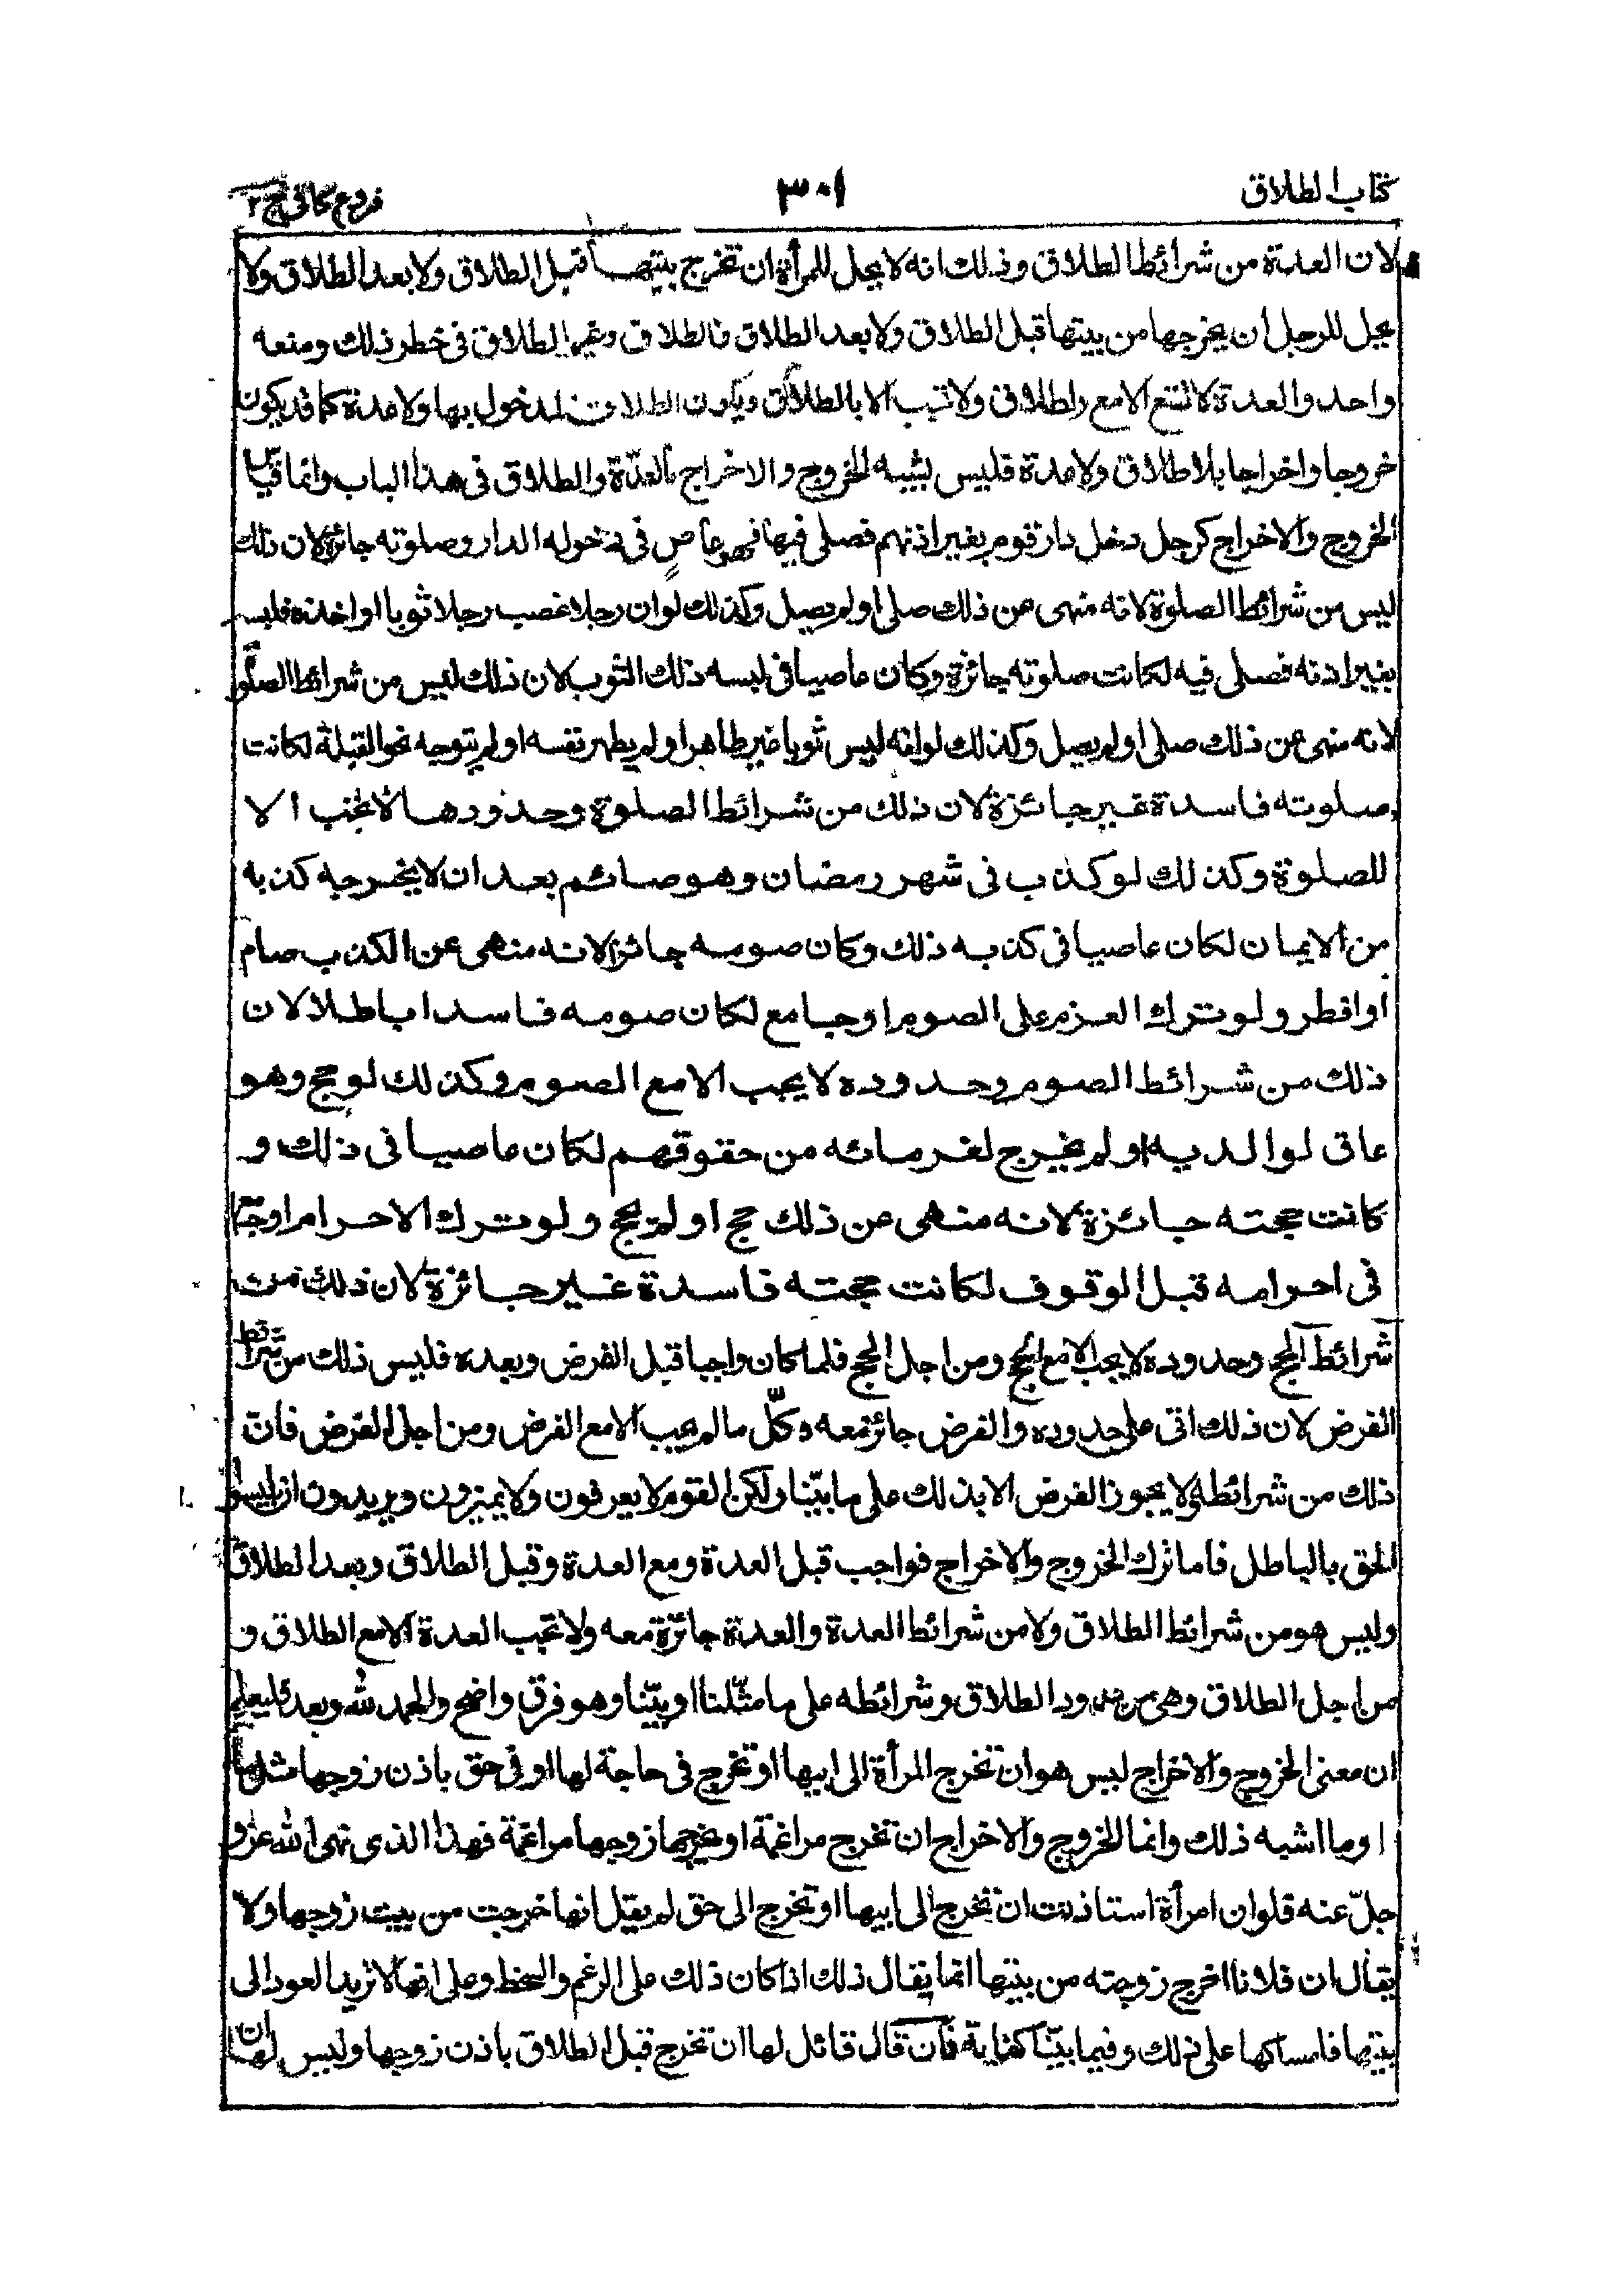 كتاب الطلاق
٣٠١
فروع كافى ج ٢
لان العدة من شرائط الطلاق وذلك انه لا يحل للمرأة ان تخرج بيتها قبل الطلاق ولا بعد الطلاق ولا
يحل للرجل ان يخرجها من بيتها قبل الطلاق ولا بعد الطلاق فالطلاق وغير الطلاق فى خطر ذلك ومنعه
واحد والعدة لا تقع الا مع الطلاق ولا تجب الا بالطلاق ويكون الطلاق لمدخول بها ولا عدة كما قد يكون
خروجا واخراجا بلا طلاق ولا عدة فليس يشبه الخروج والاخراج بالعدّة والطلاق فى هذا الباب وانما قياس
الخروج والاخراج كرجل دخل دار قوم بغير اذنهم فصلى فيها فهو عاصٍ فى دخوله الدار وصلوته جائزة لان ذلك
ليس من شرائط الصلوة لانه منهى عن ذلك صلى او لم يصل وكذلك لو ان رجلا غصب رجلا ثوبا او اخذه فلبسه
بغير اذنه فصلى فيه لكانت صلوته جائزة وكان عاصيا فى لبسه ذلك الثوب لان ذلك ليس من شرائط الصلوة
لانه منهى عن ذلك صلى او لم يصل وكذلك لو انه لبس ثوبا غير طاهر او لم يطهر نفسه او لم يتوجه نحو القبلة لكانت
صلوته فاسدة غير جائزة لان ذلك من شرائط الصلوة وحدودها لا يجب الا
للصلوة وكذلك لو كذب فى شهر رمضان وهو صائم بعد ان لا يخرجه كذبه
من الايمان لكان عاصيا فى كذبه ذلك وكان صومه جائزا لانه منهى عن الكذب صام
او افطر ولو ترك العزم على الصوم او جامع لكان صومه فاسدا باطلا لان
ذلك من شرائط الصوم وحدوده لا يجب الا مع الصوم وكذلك لو حج وهو
عاق لوالديه او لم يخرج لغرمائه من حقوقهم لكان عاصيا فى ذلك و
كانت حجته جائزة لانه منهى عن ذلك حج او لم يحج ولو ترك الاحرام او جامع
فى احرامه قبل الوقوف لكانت حجته فاسدة غير جائزة لان ذلك من
شرائط الحج وحدوده لا يجب الا مع الحج ومن اجل الحج فلما كان واجبا قبل الفرض وبعده فليس ذلك من شرائط
الفرض لان ذلك اتى على حدوده والفرض جائز معه وكلّ ما لم يجب الا مع الفرض ومن اجل الفرض فانّ
ذلك من شرائطه لا يجوز الفرض الا بذلك على ما بيّنا ولكن القوم لا يعرفون ولا يميزون ويريدون ان يلبسوا
الحق بالباطل فاما ترك الخروج والاخراج فواجب قبل العدة ومع العدة وقبل الطلاق وبعد الطلاق
وليس هو من شرائط الطلاق ولا من شرائط العدة والعدة جائزة معه ولا تجب العدة الا مع الطلاق و
من اجل الطلاق وهى من حدود الطلاق وشرائطه على ما مثّلنا او بيّنا وهو فرق واضح والحمد لله وبعد فليعلم
ان معنى الخروج والاخراج ليس هو ان تخرج المرأة الى ابيها او تخرج فى حاجة لها او فى حق باذن زوجها مثل
او ما اشبه ذلك وانما الخروج والاخراج ان تخرج مراغمة او يخرجها زوجها مراغمة فهذا الذى نهى الله عز و
جلّ عنه فلو ان امرأة استاذنت ان تخرج الى ابيها او تخرج الى حق لم يقل انها خرجت من بيت زوجها ولا
يقال ان فلانا اخرج زوجته من بيتها انما يقال ذلك اذا كان ذلك على الرغم والسخط وعلى انها لا تريد العود الى
بيتها فامساكها على ذلك وفيما بيّنا كفاية فان قال قائل لها ان تخرج قبل الطلاق باذن زوجها وليس لها ان